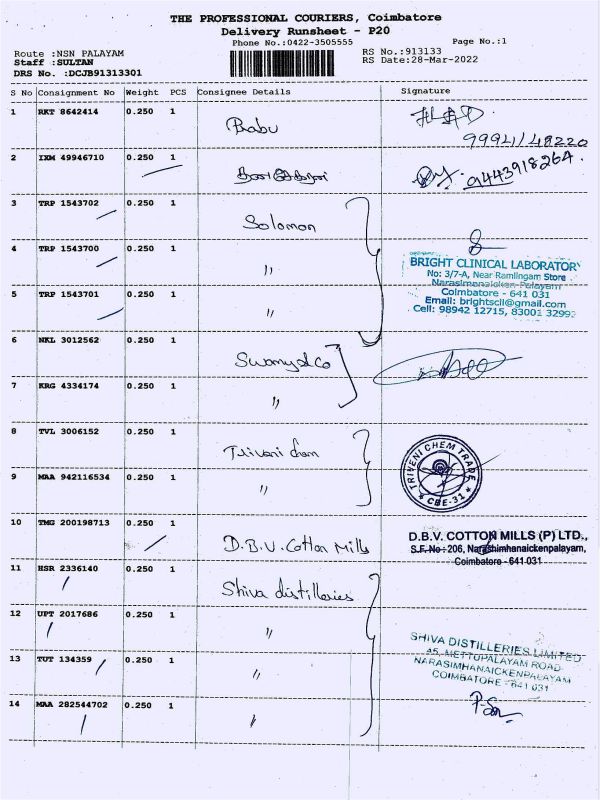 THE PROFESSIONAL COURIERS, Coimbatore
Delivery Runsheet - P20
Phone No.:0422-3505555
Page No.:1
Route :NSN PALAYAM
RS No.:913133
Staff :SULTAN
RS Date:28-Mar-2022
DRS No. :DCJB91313301
S No Consignment No Weight PCS Consignee Details Signature
1 RKT 8642414 0.250 1 Babu
2 IXM 49946710 0.250 1 9443918264.
3 TRP 1543702 0.250 1 Solomon
4 TRP 1543700 0.250 1 〃
BRIGHT CLINICAL LABORATORY
No: 3/7-A, Near Ramlingam Store
Narasimanaicken Palayam
5 TRP 1543701 0.250 1 〃
Coimbatore - 641 031
Email: brightscli@gmail.com
Cell: 98942 12715, 83001 32992
6 NKL 3012562 0.250 1 Swamy & Co
7 KRG 4334174 0.250 1 〃
8 TVL 3006152 0.250 1 Triveni chem
TRIVENI CHEM TRADE
★ CBE-31 ★
9 MAA 942116534 0.250 1 〃
10 TMG 200198713 0.250 1 D.B.V. Cotton Mills
D.B.V. COTTON MILLS (P) LTD.,
S.F. No : 206, Narashimhanaickenpalayam,
Coimbatore - 641 031
11 HSR 2336140 0.250 1 Shiva distilleries
12 UPT 2017686 0.250 1 〃
SHIVA DISTILLERIES LIMITED
45, METTUPALAYAM ROAD
NARASIMHANAICKENPALAYAM
COIMBATORE - 641 031
13 TUT 134359 0.250 1 〃
14 MAA 282544702 0.250 1 〃